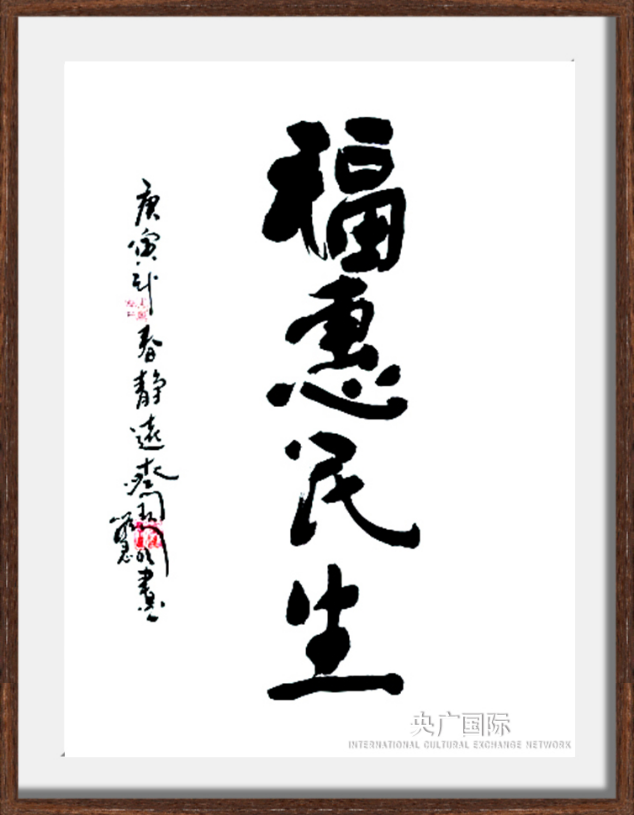 福惠民生
庚寅新春静远斋
书
央广国际
INTERNATIONAL CULTURAL EXCHANGE NETWORK